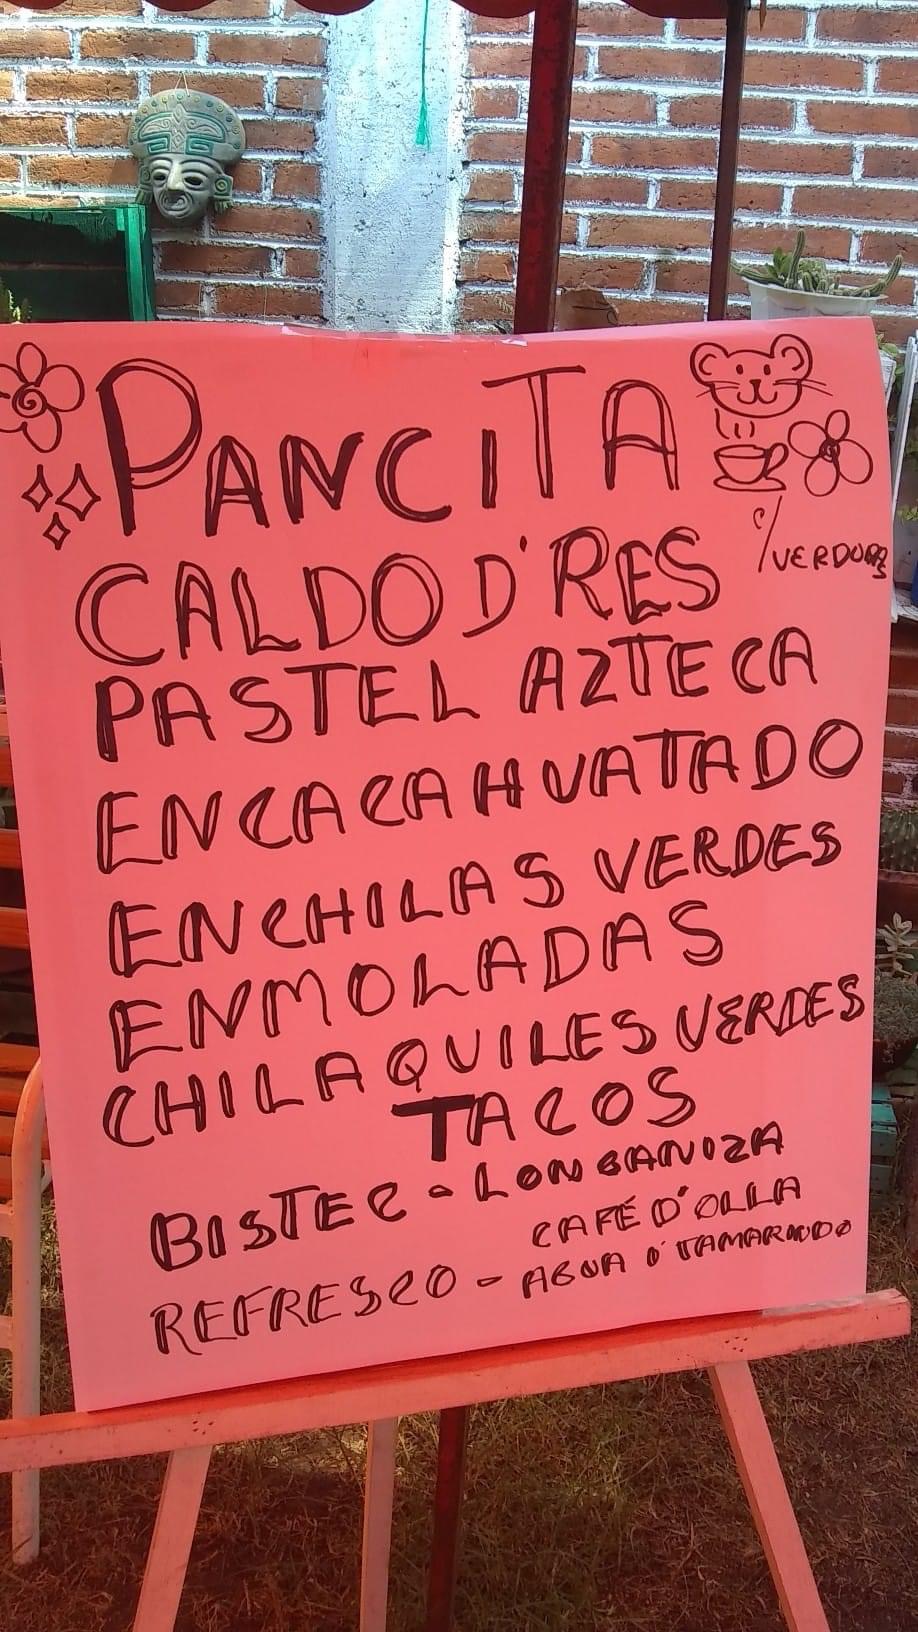 PANCITA
CALDO D'RES c/VERDURAS
PASTEL AZTECA
ENCACAHUATADO
ENCHILAS VERDES
ENMOLADAS
CHILAQUILES VERDES
TACOS
BISTEC - LONGANIZA
CAFÉ D'OLLA
REFRESCO - AGUA D'TAMARINDO